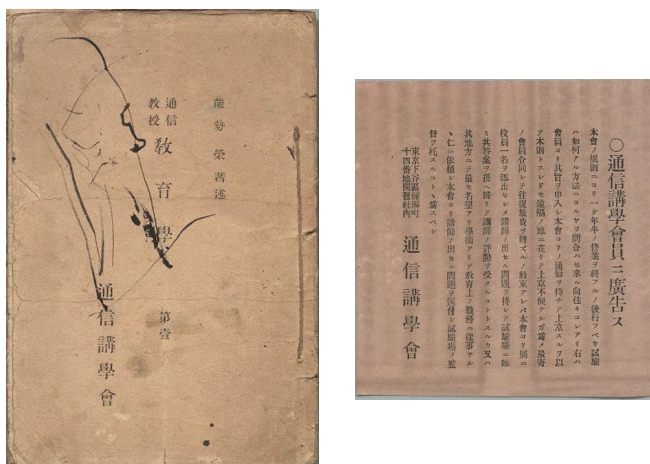 能勢榮著述
通信
教授
教育學
第壹
通信講學會
○通信講學會員ニ廣吿ス
本會ノ規則ニヨリ一ケ年半ノ修業ヲ終フルノ後行フベキ試驗
ハ如何ナル方法ニヨルヤヲ問合ハセ來ル向往々コレアリ右ハ
會員ヨリ其旨ヲ申入レ本會ヨリノ通知ヲ待チテ上京スルヲ以
テ本則トスレドモ遠隔ノ地ニ在リテ上京不便ナルガ爲メ最寄
ノ會員合同シテ往復旅費ヲ辨ズルノ約束アレバ本會ヨリ別ニ
役員一名ヲ派出セシメ講師ノ出セル問題ヲ持シテ試驗場ニ臨
ミ其答案ヲ携ヘ歸リテ講師ノ評點ヲ受クルコトトスルカ又ハ
其地方ニテ最モ名望アリ學術アリテ教育上ノ職務ニ從事サル
ヽ仁ニ依賴シ本會ヨリ講師ノ出セル問題ヲ送付シ試驗場ノ監
督ヲ托スルコトヽ爲スベシ
東京下谷區練塀町
十四番地開發社內
通信講學會